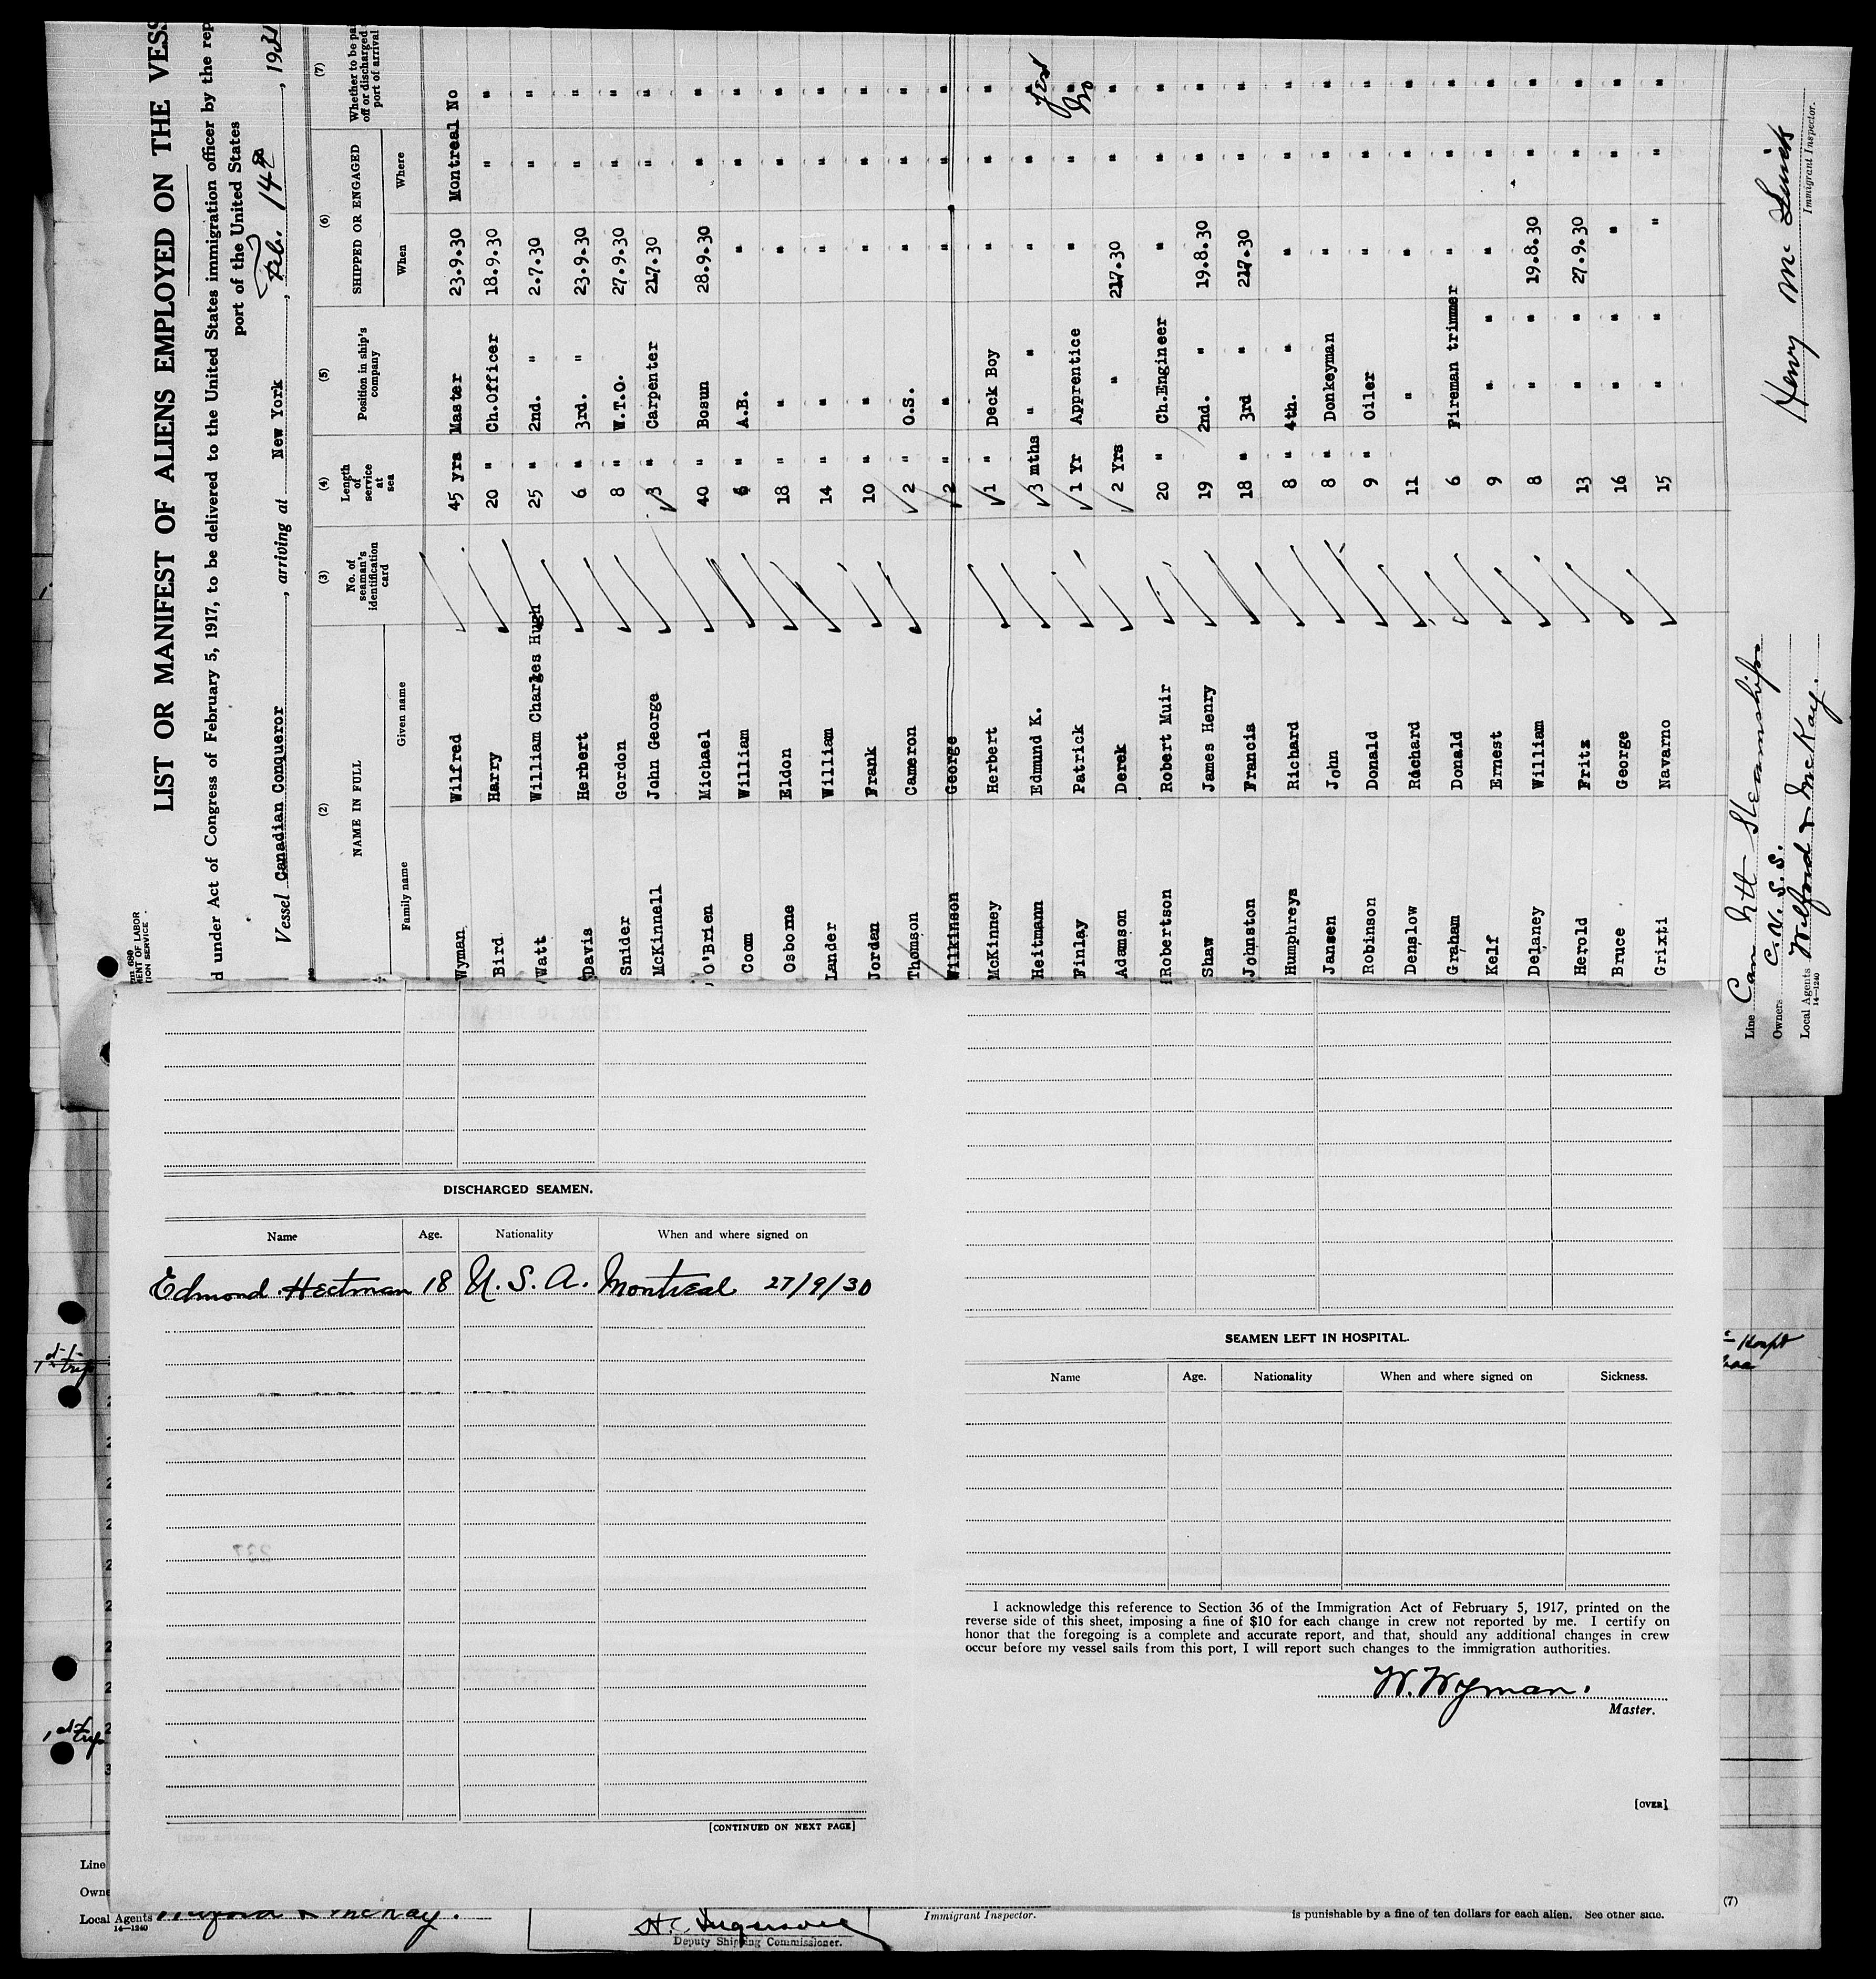 LIST OR MANIFEST OF ALIENS EMPLOYED ON THE VESS
d under Act of Congress of February 5, 1917, to be delivered to the United States immigration officer by the rep
port of the United States
Vessel Canadian Conqueror, arriving at New York, Feb. 14th, 1931
(2) (3) (4) (5) (6) (7)
NAME IN FULL No. of seaman's identification card Length of service at sea Position in ship's company SHIPPED OR ENGAGED Whether to be pai off or discharged port of arrival
Family name Given name When Where
Wyman Wilfred 45 yrs Master 23.9.30 Montreal No
Bird Harry 20 " Ch.Officer 18.9.30 " "
Watt William Charles Hugh 25 " 2nd. " 2.7.30 " "
Davis Herbert 6 " 3rd. " 23.9.30 " "
Snider Gordon 8 " W.T.O. 27.9.30 " "
McKinnell John George 3 " Carpenter 217.30 " "
O'Brien Michael 40 " Bosun 28.9.30 " "
Coom William 6 " A.B. " " "
Osborne Eldon 18 " " " " "
Lander William 14 " " " " "
Jordan Frank 10 " " " " "
Thomson Cameron 2 " O.S. " " "
Wilkinson George 2 " " " " "
McKinney Herbert 1 " Deck Boy " " "
Heitmann Edmund K. 3 mths " " " " " yes
Finlay Patrick 1 Yr Apprentice " " " No
Adamson Derek 2 Yrs " 217.30 " "
Robertson Robert Muir 20 " Ch.Engineer " " "
Shaw James Henry 19 2nd. " 19.8.30 " "
Johnston Francis 18 " 3rd " 217.30 " "
Humphreys Richard 8 " 4th. " " " "
Jansen John 8 " Donkeyman " " "
Robinson Donald 9 " Oiler " " "
Denslow Richard 11 " " " "
Graham Donald 6 Fireman trimmer " " "
Kelf Ernest 9 " " " " "
Delaney William 8 " " 19.8.30 " "
Herold Fritz 13 " " 27.9.30 " "
Bruce George 16 " " " " "
Grixti Navarno 15 " " " " "
Line Can Ntl Steamships
Owners C.N.S.S.
Local Agents Welford & McKay.
14—1240
Henry Mc
Immigrant Inspector.
DISCHARGED SEAMEN.
Name Age. Nationality When and where signed on
Edmond Hectman 18 U.S.A. Montreal 27/9/30
[CONTINUED ON NEXT PAGE]
SEAMEN LEFT IN HOSPITAL.
Name Age. Nationality When and where signed on Sickness.
I acknowledge this reference to Section 36 of the Immigration Act of February 5, 1917, printed on the
reverse side of this sheet, imposing a fine of $10 for each change in crew not reported by me. I certify on
honor that the foregoing is a complete and accurate report, and that, should any additional changes in crew
occur before my vessel sails from this port, I will report such changes to the immigration authorities.
W. Wyman.
Master.
[OVER]
1st trip
1st trip
Line
Owne
Local Agents McKay.
14—1240
Deputy Shipping Commissioner.
Immigrant Inspector.
is punishable by a fine of ten dollars for each alien. See other side.
(7)